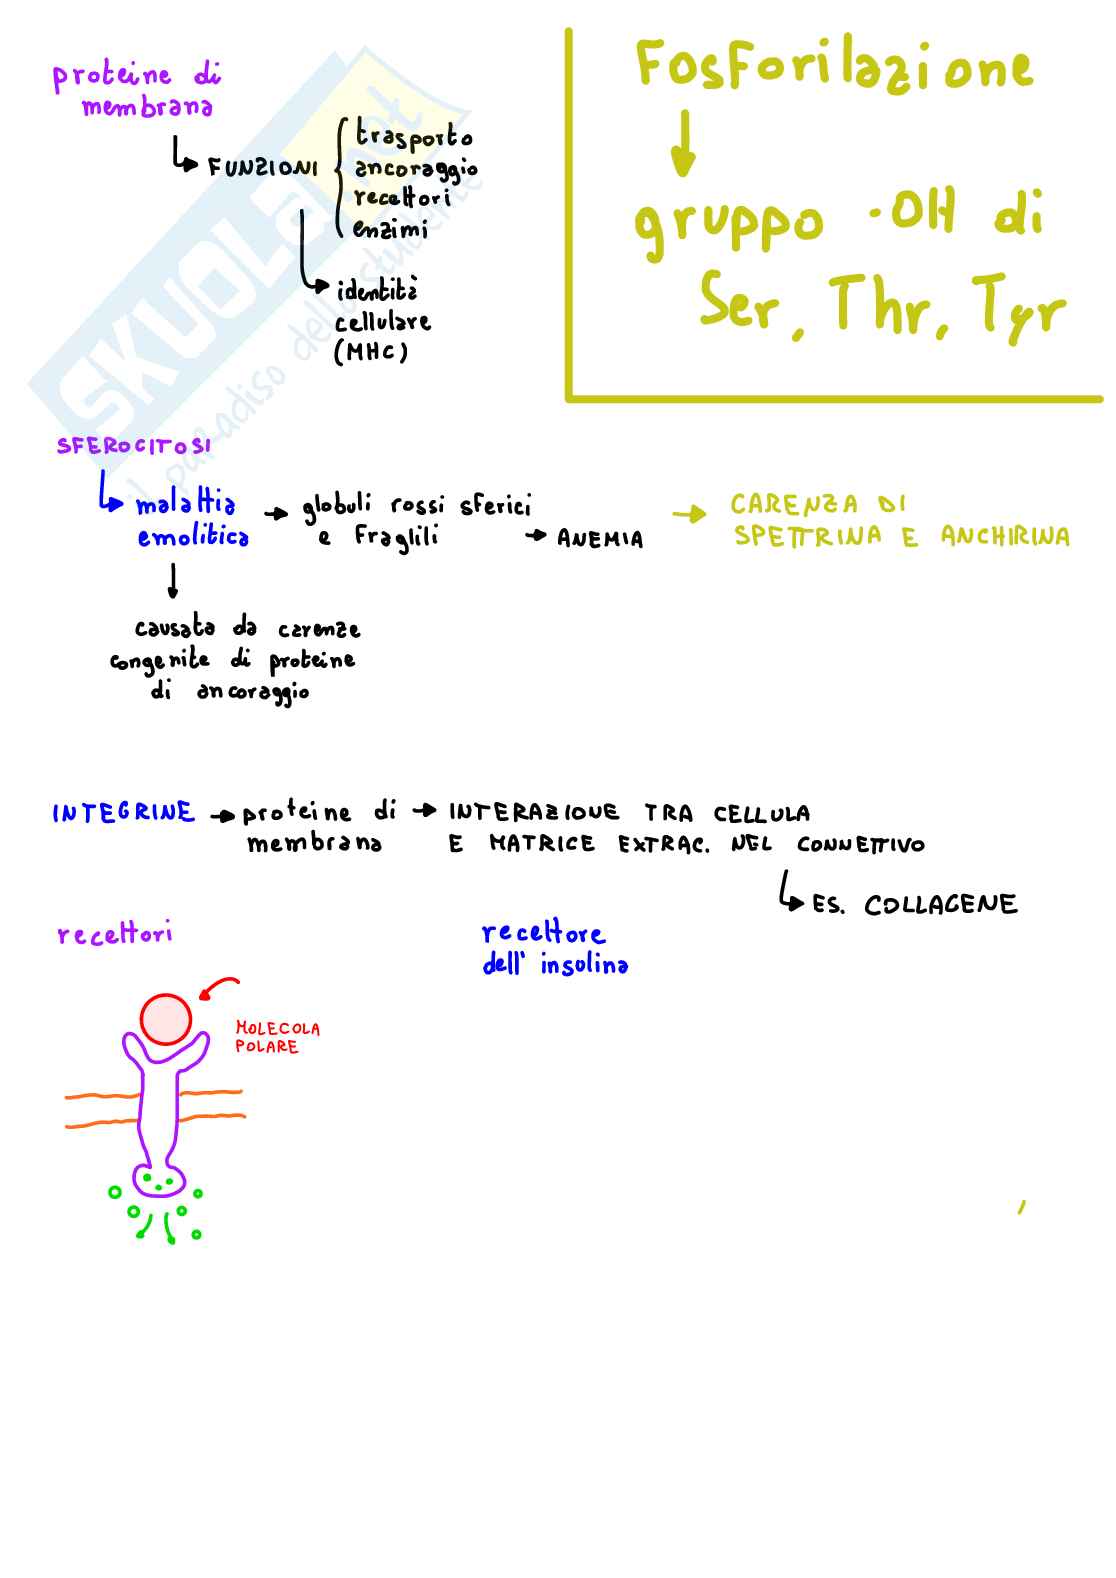 proteine di
membrana
FUNZIONI
trasporto
ancoraggio
recettori
enzimi
identità
cellulare
(MHC)
Fosforilazione
gruppo -OH di
Ser, Thr, Tyr
SKUOLA.net
il paradiso dello studente
SFEROCITOSI
malattia
emolitica
globuli rossi sferici
e fraglili
ANEMIA
CARENZA DI
SPETTRINA E ANCHIRINA
causata da carenze
congenite di proteine
di ancoraggio
INTEGRINE
proteine di
membrana
INTERAZIONE TRA CELLULA
E MATRICE EXTRAC. NEL CONNETTIVO
ES. COLLAGENE
recettori
recettore
dell' insolina
MOLECOLA
POLARE